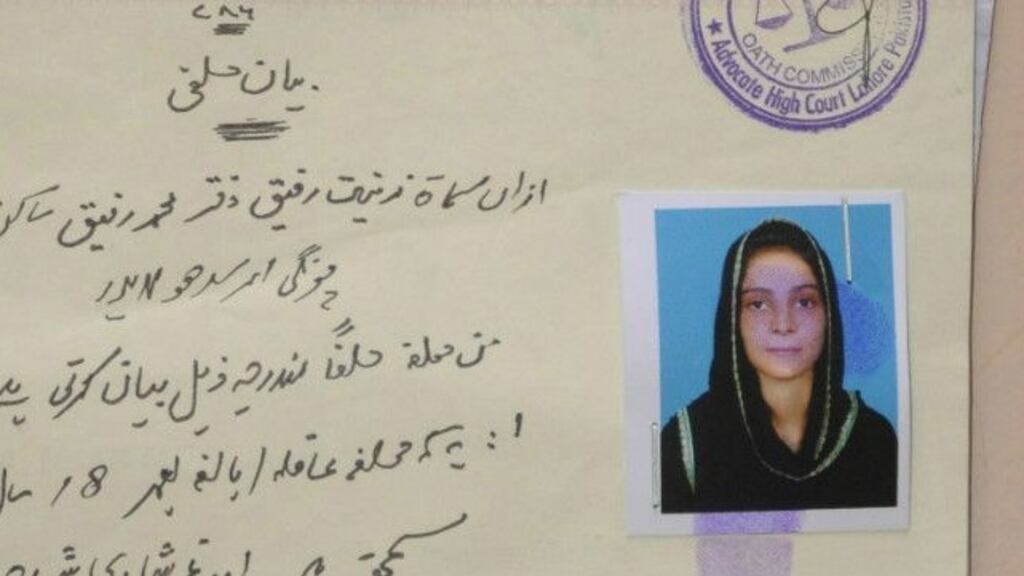 ۷۸۶
بیان حلفی
ازاں مسماۃ زینت رفیق دختر محمد رفیق ساکن
چونگی امر سدھو لاہور
من حلفاً مندرجہ ذیل بیان کرتی
1: یہ کہ من محلفہ عاقلہ / بالغہ بعمر 18 سال
OATH COMMISS
★ Advocate High Court Lahore Pakistan